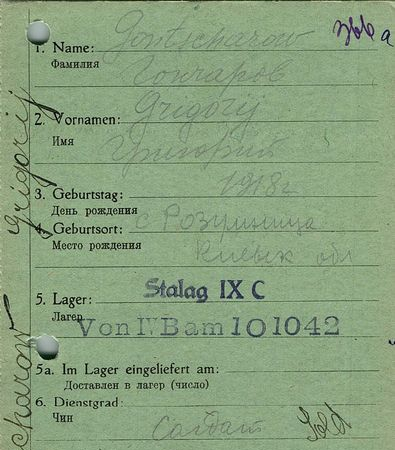 Gontscharow
1. Name:
Фамилия
Гончаров
Grigorij
2. Vornamen:
Имя
Григорий
1918 г
3. Geburtstag:
День рождения
с Розумница
4. Geburtsort:
Место рождения
Киевск обл
Stalag IX C
5. Lager:
Лагер
Von IV B am 101042
5a. Im Lager eingeliefert am:
Доставлен в лагер (число)
6. Dienstgrad:
Чин
Солдат
Sold
Grigorij
charow